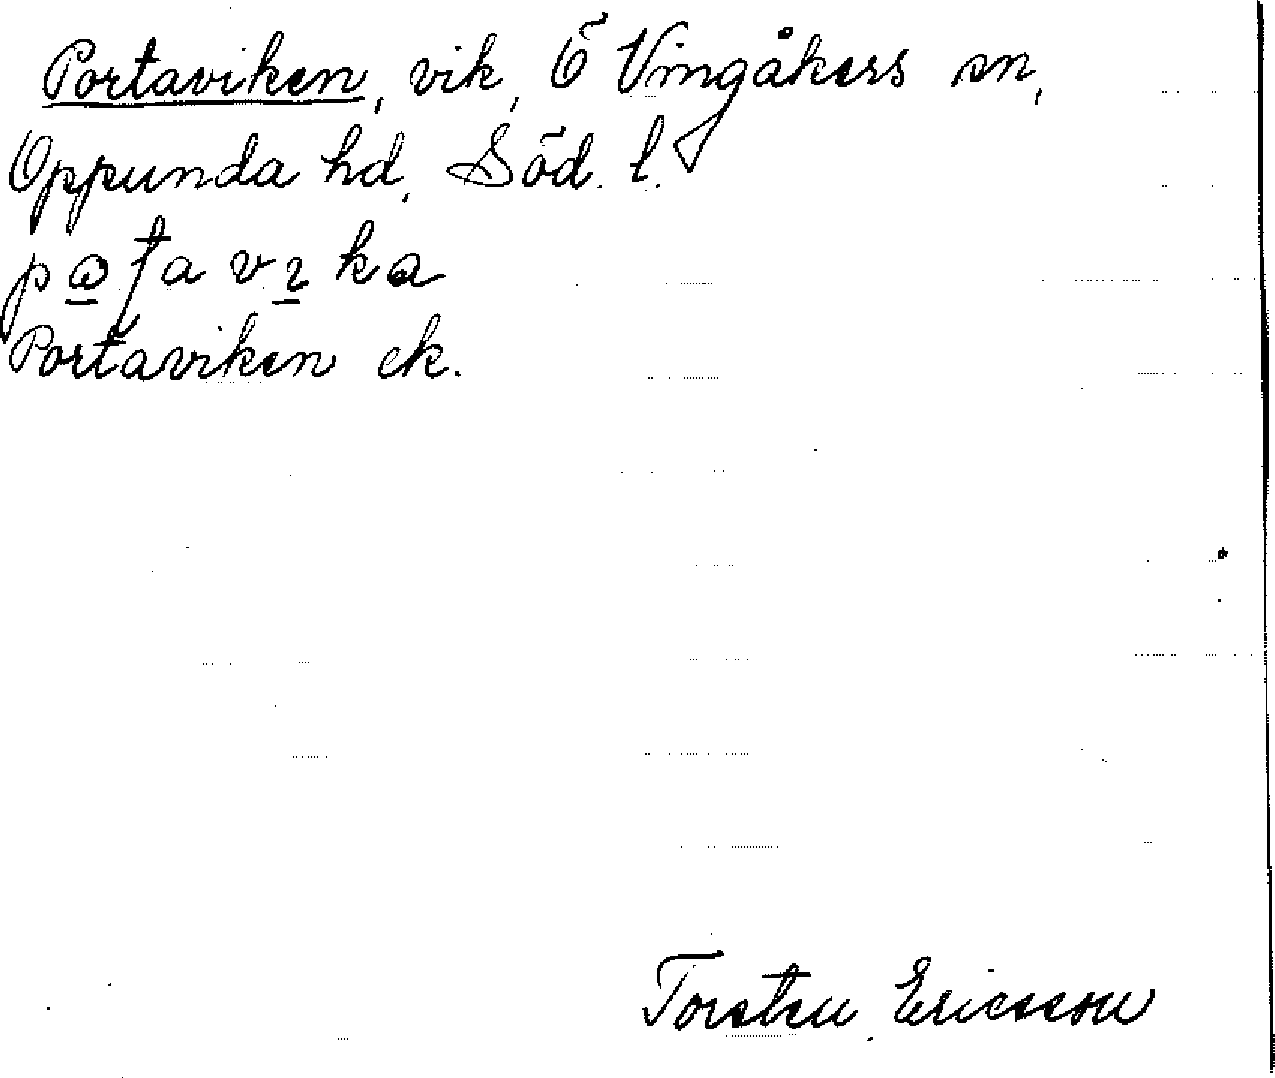 Portaviken, vik, Ö Vingåkers sn,
Oppunda hd, Söd. l.
Portaviken ek.
Torsten Ericsson